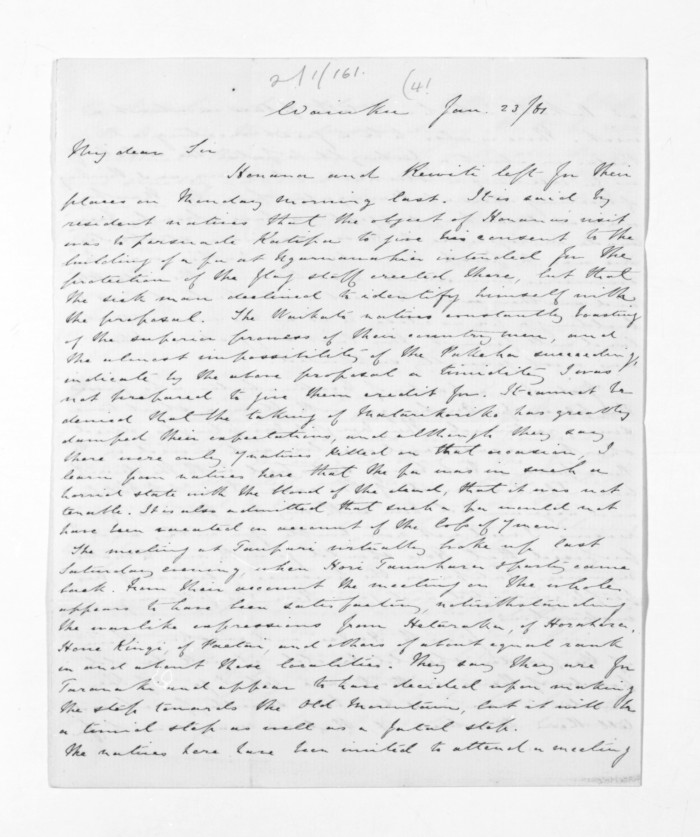 2/1/161. (4!
Waiuku Jan. 23/61
My dear Sir
Honana and Rewiti left for their
places on Monday morning last. It is said by
resident natives that the object of Honana's visit
was to persuade Katipa to give his consent to the
building of a pa at Ngaruawahia intended for the
protection of the flag staff erected there, but that
the sick man declined to identify himself with
the proposal. The Waikato natives constantly boasting
of the superior prowess of their countrymen, and
the almost impossibility of the Pakeha succeeding,
indicate by the above proposal a timidity I was
not prepared to give them credit for. It cannot be
denied that the taking of Matarikoriko has greatly
damped their expectations, and although they say
there were only 7 natives killed on that occasion, I
learn from natives here that the pa was in such a
horrid state with the blood of the dead, that it was not
tenable. It is also admitted that such a pa would not
have been vacated on account of the loss of 7 men.
The meeting at Taupari virtually broke up last
Saturday evening, when Hori Tauroa & party came
back. From their account the meeting on the whole
appears to have been satisfactory, notwithstanding
the warlike expressions from of
Hone Kingi, of Paetai, and others of about equal rank
in and about these localities. They say they are for
Taranaki and appear to have decided upon making
the step towards the Old Mountain, but it will be
a timid step as well as a fatal step.
The natives here have been invited to attend a meeting